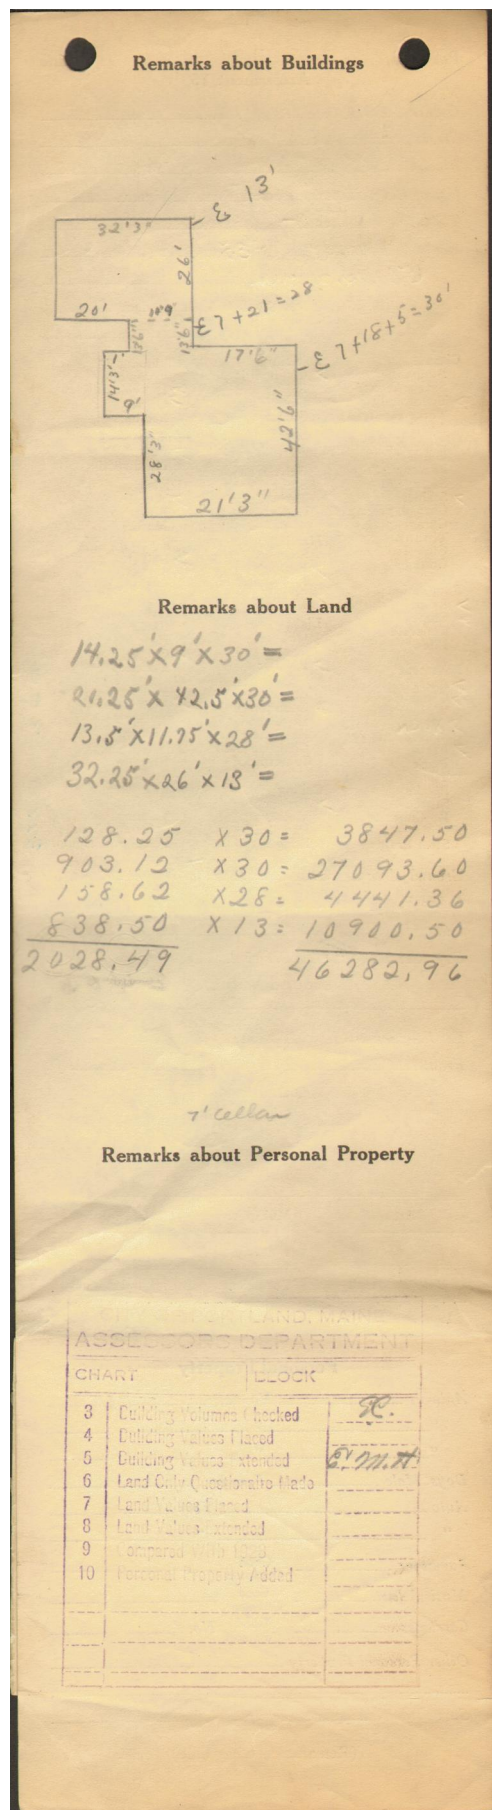 Remarks about Buildings
13'
32'3"
26'
20'
7+21=28
7+18+5=30'
17'6"
14'3"
9'
42'6"
28'3"
21'3"
Remarks about Land
14.25'x9'x30'=
21.25'x42.5'x30'=
13.5'x11.75'x28'=
32.25'x26'x13'=
128.25 x30= 3847.50
903.12 x30= 27093.60
158.62 x28= 4441.36
838.50 x13= 10900.50
2028.49 46282.96
7' cellar
Remarks about Personal Property
LAND, MAINE
ASSESSORS DEPARTMENT
CHART BLOCK
3 Building Volumes Checked
4 Building Values Placed
5 Building Values Extended E.M.H.
6 Land Only Questionaire Made
7 Land Values Placed
8 Land Values Extended
9 Compared With
10 Personal Property Added